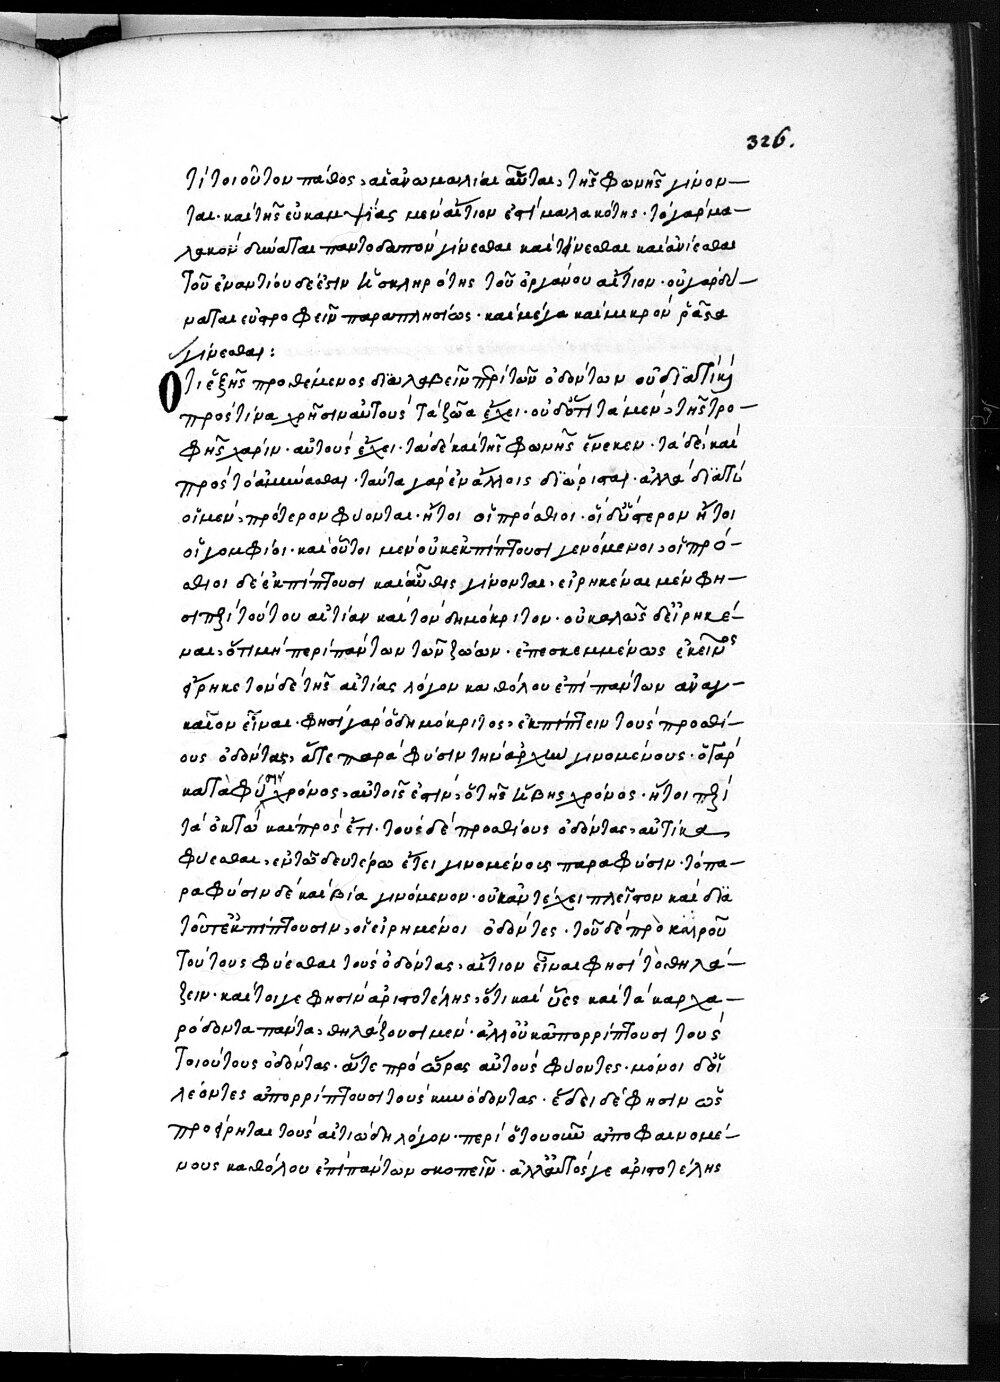 326.
τί τοιοῦτον πάθος, αἱ ἀνωμαλίαι αὗται, τῆς φωνῆς γίνον–
ται· καὶ τῆς εὐκαμψίας μὲν αἴτιον ἐστὶ μαλακότης· τὸ γὰρ μα–
λακὸν δύναται παντοδαπὸν γίνεσθαι καὶ τείνεσθαι καὶ ἀνίεσθαι
τοῦ ἐναντίου δέ ἐστιν ἡ σκληρότης τοῦ ὀργάνου αἴτιον· οὐ γὰρ δύ–
ναται εὐτροφεῖν παραπλησίως· καὶ μέγα καὶ μικρὸν ῥᾷστα
γίνεσθαι:
Ὅτι ἑξῆς προθέμενος διαλαβεῖν περὶ τῶν ὀδόντων οὐ διατί καὶ
πρὸς τίνα χρῆσιν αὐτοὺς τὰ ζῶα ἔχει· οὐδ' ὅτι τὰ μὲν, τῆς τρο–
φῆς χάριν· αὐτοὺς ἔχει· τὰ δὲ καὶ τῆς φωνῆς ἕνεκεν· τὰ δὲ, καὶ
πρὸς τὸ ἀμύνασθαι· ταῦτα γὰρ ἐν ἄλλοις διώρισται· ἀλλὰ διατί
οἱ μὲν, πρότερον φύονται· ἤτοι οἱ πρόσθιοι· οἱ δ' ὕστερον ἤτοι
οἱ γομφίοι· καὶ οὗτοι μὲν οὐκ ἐκπίπτουσι γενόμενοι, οἱ πρό–
σθιοι δὲ ἐκπίπτουσι καὶ αὖθις γίνονται, εἰρηκέναι μὲν φη–
σι περὶ τούτου αἰτίαν καὶ τὸν δημόκριτον· οὐ καλῶς δὲ εἰρηκέ–
ναι, ὅτι μὴ περὶ πάντων τῶν ζώων· ἐπεσκεμμένως ἐκεῖνος
εἴρηκε τὸν δὲ τῆς αἰτίας λόγον καθόλου ἐπὶ πάντων ἀναγ–
καῖον εἶναι· φησὶ γὰρ ὁ δημόκριτος, ἐκπίπτειν τοὺς προσθί–
ους ὀδόντας, ἅτε παρὰ φύσιν τὴν ἀρχὴν γινομένους· ὁ γὰρ
κατὰ φύσιν χρόνος, αὐτοῖς ἐστιν, ὁ τῆς ἥβης χρόνος· ἤτοι περὶ
τὰ ὀκτὼ καὶ πρὸς ἔτι· τοὺς δὲ προσθίους ὀδόντας, αὐτίκα,
φύεσθαι, ἐν τῶ δευτέρω ἔτει γινομένοις παρὰ φύσιν· τὸ πα–
ρὰ φύσιν δὲ καὶ βία γινόμενον· οὐκ ἀντέχει πλεῖστον καὶ διὰ
τοῦτ' ἐκπίπτουσιν, οἱ εἰρημένοι ὀδόντες· τοῦ δὲ πρὸ καιροῦ
τούτους φύεσθαι τοὺς ὀδόντας, αἴτιον εἶναι φησὶ τὸ θηλά–
ζειν· καίτοι γε φησὶν ἀριστοτέλης, ὅτι καὶ ὕες καὶ τὰ καρχα–
ρόδοντα πάντα, θηλάζουσι μὲν· ἀλλ' οὐκ ἀπορρίπτουσι τοὺς
τοιούτους ὀδόντας· ἅτε πρὸ ὥρας αὐτοὺς φύοντες· μόνοι δ' οἱ
λέοντες ἀπορρίπτουσι τοὺς κυνόδοντας· ἔδει δὲ φησὶν ὡς
προείρηται τοὺς αἰτιώδη λόγον· περὶ ὁτουοῦν ἀποφαινομέ–
νους καθόλου ἐπὶ πάντων σκοπεῖν· ἀλλ' αὐτός γε ἀριστοτέλης